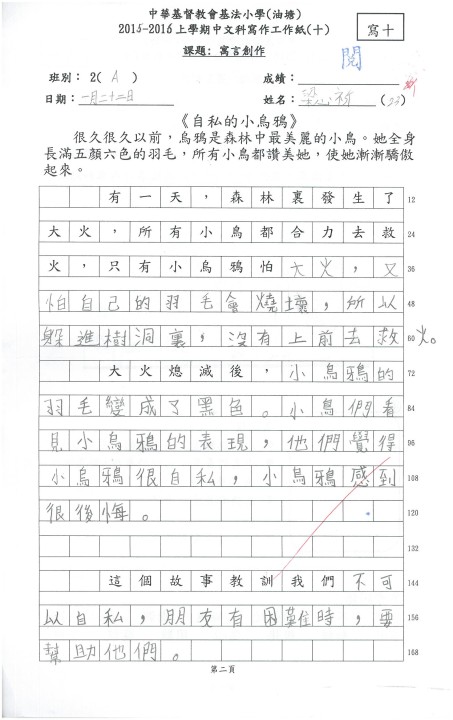 中華基督教會基法小學(油塘)
2015-2016上學期中文科寫作工作紙(十)
寫十
課題: 寓言創作
閱
班別: 2( A )
成績:
日期: 一月二十二日
姓名: 梁心祈 (23)
《自私的小烏鴉》
很久很久以前，烏鴉是森林中最美麗的小鳥。她全身
長滿五顏六色的羽毛，所有小鳥都讚美她，使她漸漸驕傲
起來。
有一天，森林裏發生了 12
大火，所有小鳥都合力去救 24
火，只有小烏鴉怕大火，又 36
怕自己的羽毛會燒壞，所以 48
躲進樹洞裏，沒有上前去救 60 火。
大火熄滅後，小烏鴉的 72
羽毛變成了黑色。小鳥們看 84
見小烏鴉的表現，他們覺得 96
小烏鴉很自私，小烏鴉感到 108
很後悔。 120
132
這個故事教訓我們不可 144
以自私，朋友有困難時，要 156
幫助他們。 168
第二頁